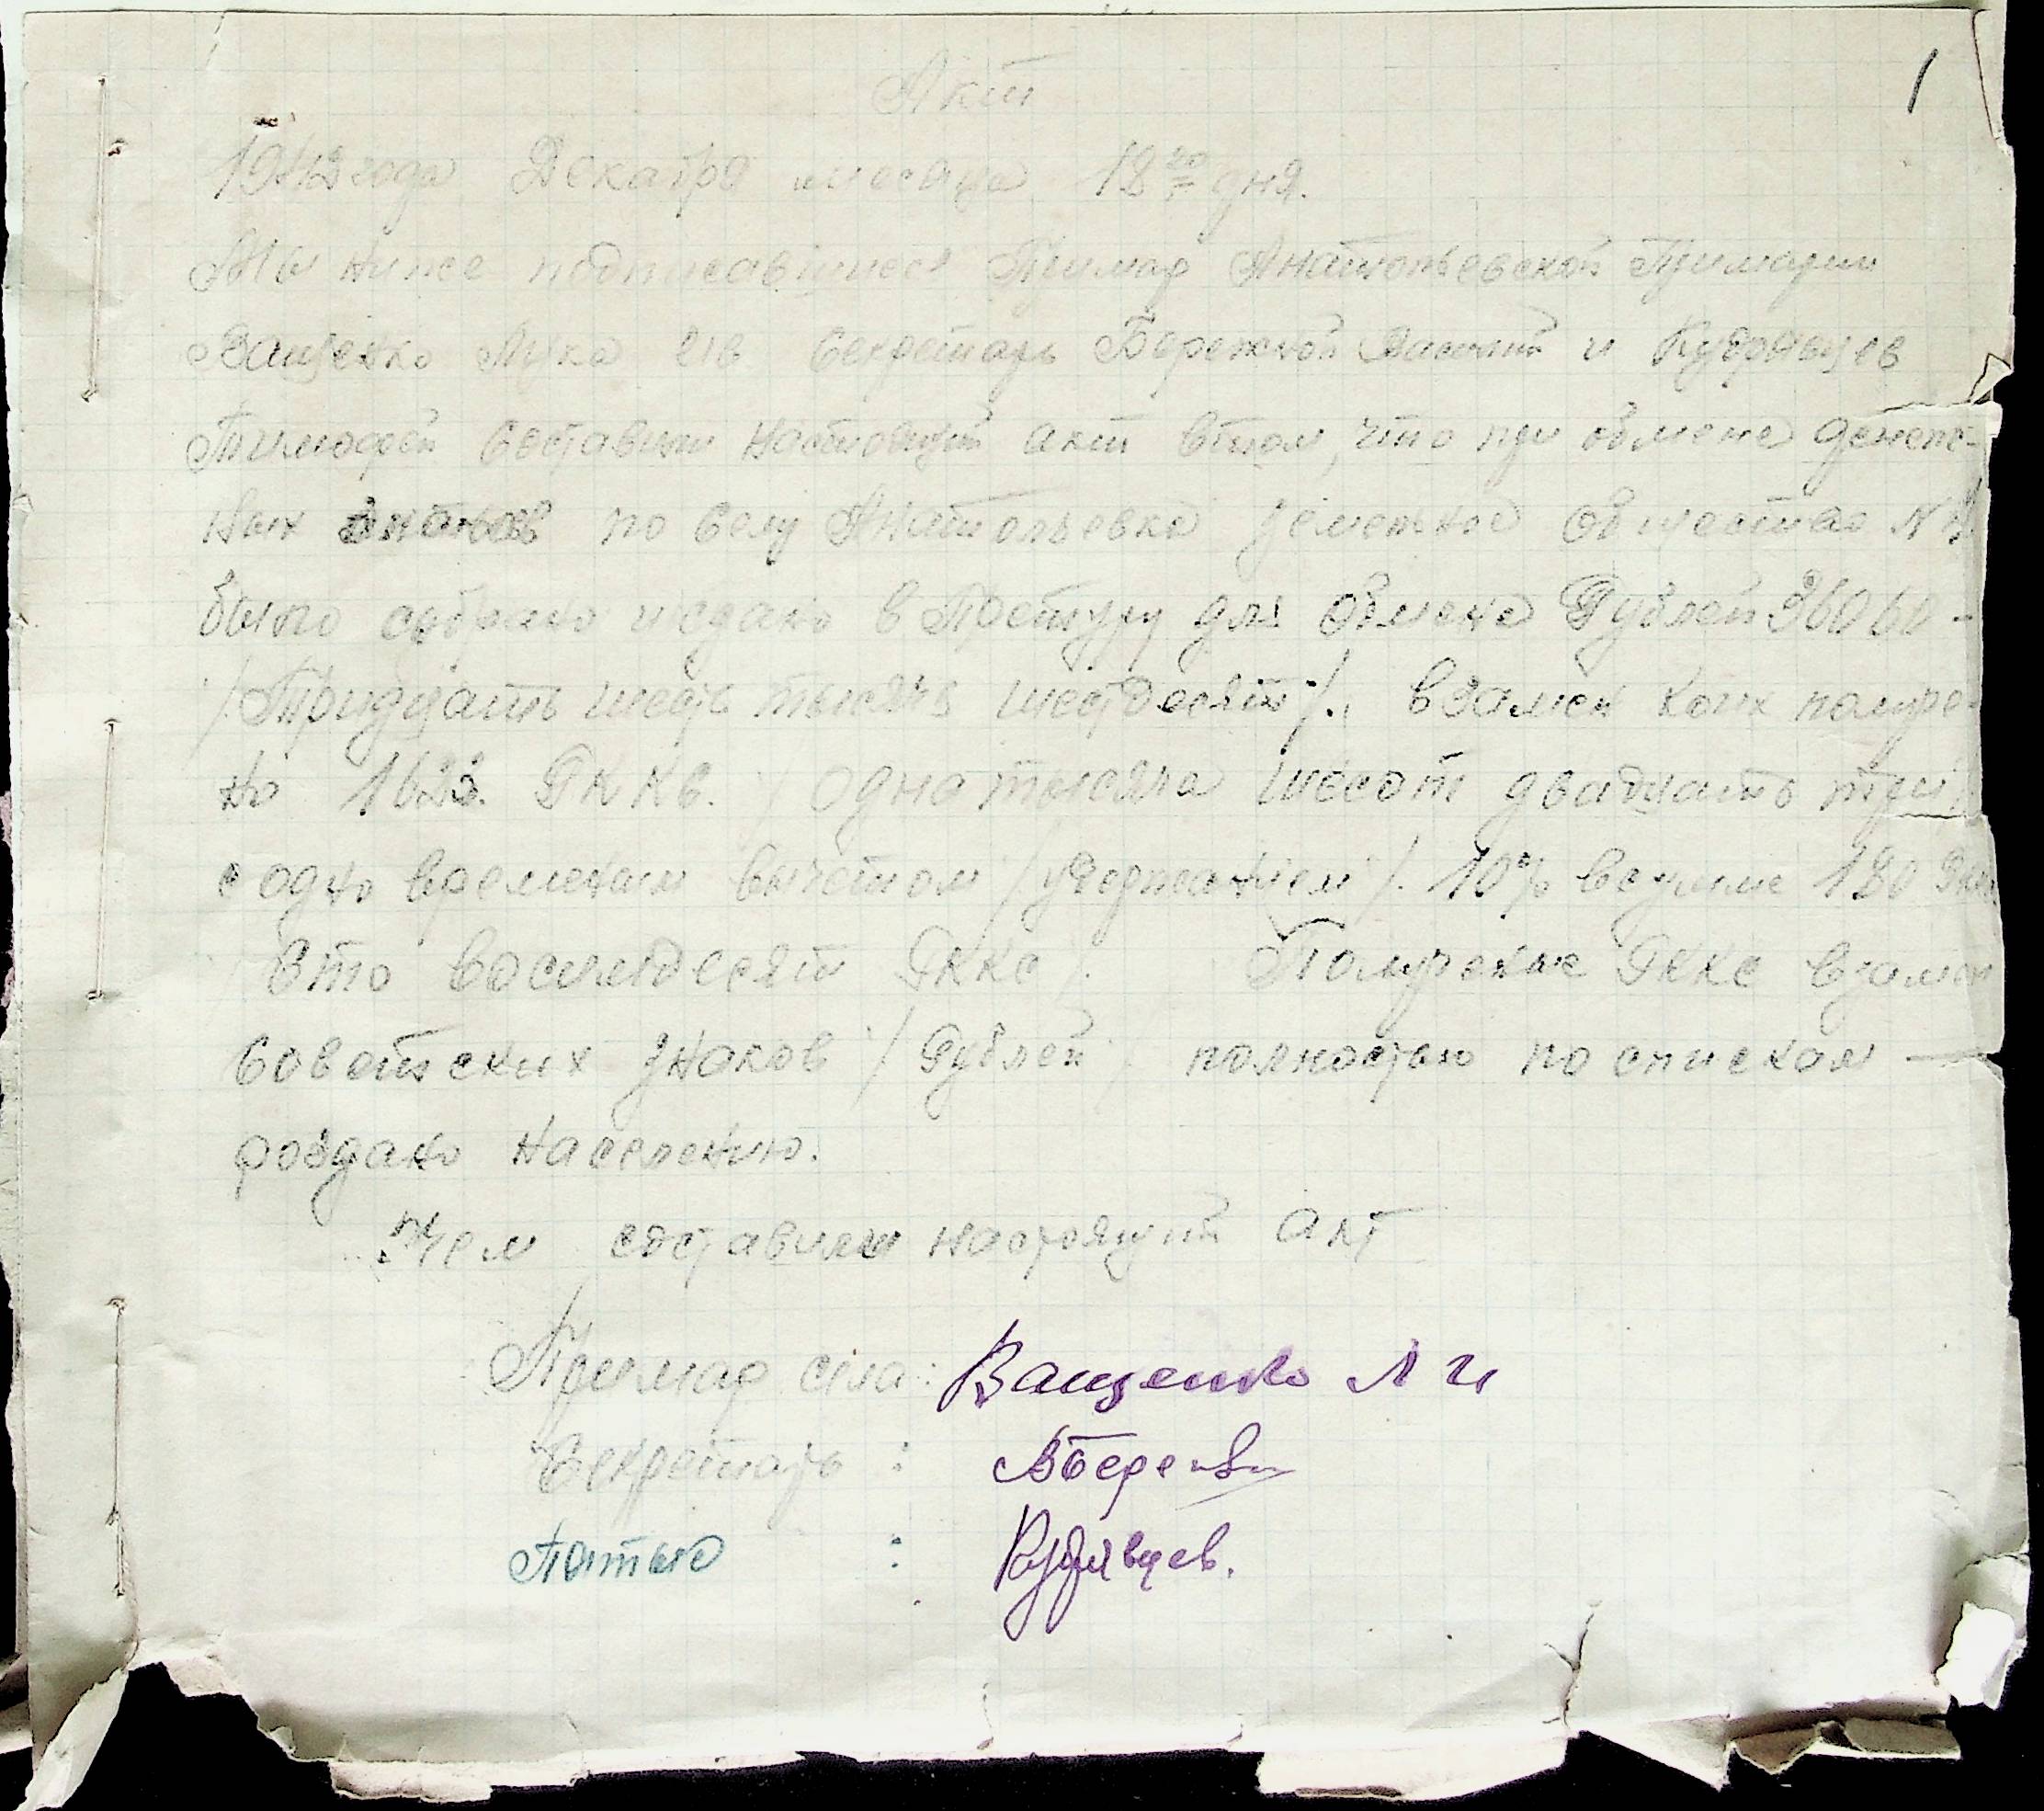 1
Акт
1942 года Декабря месяца 18го дня.
Мы ниже подписавшиеся Примар Анатольевской Примарии
Ващенко Лука Секретарь Бережной Василий и Кудрявцев
Тимофей составили настоящий акт втом, что при обмене денеж-
ных знаков по селу Анатольевка земельное общество №
было собрано и сдано в Претуру для обмена Рублей 36060 -
/Тридцать шесть тысяч шестдесят/., взамен коих получе-
но 1623. РККС. /одна тысяча шесот двадцать три/
с одно временым вычетом /удержанием/. 10% всумме 180 Ркк
Сто восимдесят РККС/. Полученые РККС взамен
Советских знаков /Рублей/ полностью по спискам —
роздано населению.
Чем составили настоящий акт
Примар села: Ващенко Л И
Секретарь :
: Кудрявцев.